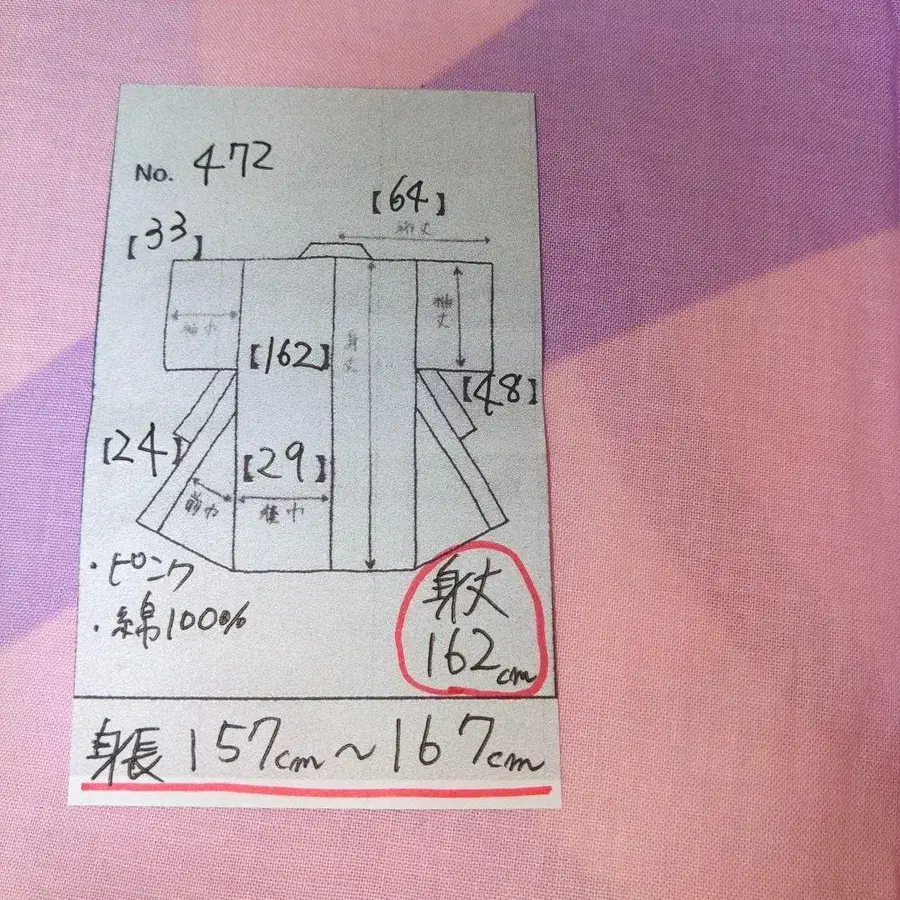 No. 472
【64】
裄丈
【33】
袖巾
袖丈
【162】
身丈
【48】
【24】
【29】
前巾
後巾
・ピンク
・綿100%
身丈
162cm
身長157cm～167cm